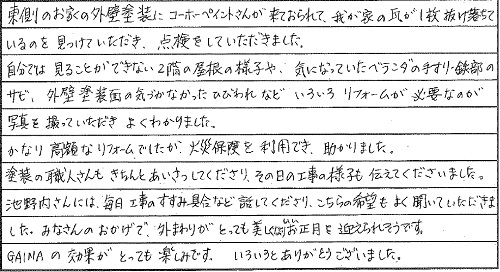 東側のお家の外壁塗装にコーホーペイントさんが来ておられて、我が家の瓦が1枚抜け落ちて
いるのを見つけていただき、点検をしていただきました。
自分では見ることができない2階の屋根の様子や、気になっていたベランダの手すり・鉄部の
サビ、外壁塗装面の気づかなかったひびわれなど いろいろリフォームが必要なのが
写真を撮っていただき よくわかりました。
かなり高額なリフォームでしたが、火災保険を利用でき、助かりました。
塗装の職人さんもきちんとあいさつしてくださり、その日の工事の様子も伝えてくださいました。
池野内さんには、毎日工事のすすみ具合など話してくださり、こちらの希望もよく聞いていただきま
した。みなさんのおかげで、外まわりがとっても美しいお正月を迎えられそうです。
GAINAの効果がとっても楽しみです。 いろいろとありがとうございました。